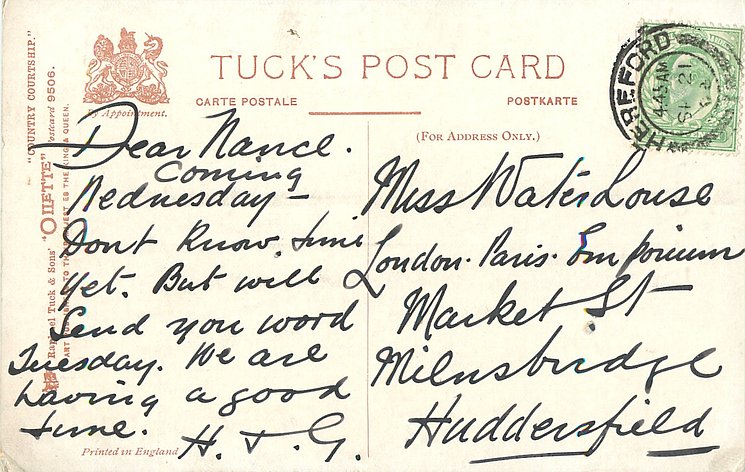 TUCK'S POST CARD
CARTE POSTALE
POSTKARTE
By Appointment.
(FOR ADDRESS ONLY.)
"COUNTRY COURTSHIP."
"OILETTE" Postcard 9506.
Raphael Tuck & Sons'
ART PUBLISHERS TO THEIR MAJESTIES THE KING & QUEEN.
HEREFORD
4.45 AM
SP 21
Dear Nance.
Coming
Wednesday –
Dont know time
yet. But will
send you word
Tuesday. We are
having a good
time.
H. & G.
Miss Waterhouse
London. Paris. Emporium
Market St
Milnsbridge
Huddersfield
Printed in England